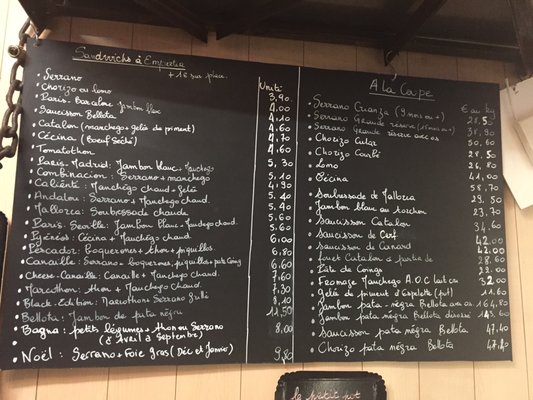 Sandwichs à Emporter
+ 1€ sur place.
Unité
Serrano 3,90
Chorizo ou Lomo 4,00
Paris. Barcelone Jambon blanc 4.10
Saucisson Bellota 4.60
Catalan (manchego + gelée de piment) 4.10
Cécina (Boeuf Séché) 4.60
Tomatothon 4.70
Paris. Madrid: Jambon blanc + Manchego 5,30
Combinacion: Serrano + manchego 5.10
Caliente: Manchego chaud + gelée 4.90
Andalou: Serrano + Manchego chaud. 5.40
Mallorca: Soubressade chaude 5.40
Paris. Seville: Jambon blanc + Manchego chaud. 5.60
Pyénéos: Cécina + Manchego chaud 6.00
Pescador: Boquerones + thon + piquillos. 6,80
Canaille: Serrano + boquerones, piquillos, pate Coing 6.60
Cheese-Canaille: Canaille + Manchego chaud. 7.60
Marathon: thon + Manchego chaud 7,30
Black-Edition: Marathon + Serrano Grillé 8,10
Bellota: Jambon de pata négra 11,50
Bagna: petits légumes + thon ou Serrano 8,00
(d'Avril à Septembre)
Noël: Serrano + Foie gras (Déc et Janvier) 9,80
A La Coupe
€ au kg
Serrano Cranza (9 mois ou +) 28,5
Serrano Grande réserve 38,90
Serrano grande réserve avec os
Chorizo Cular 28,50
Chorizo Courbé
Lomo
Cécina
Soubressade de Mallorca 29,50
Jambon blanc au torchon 23.70
Saucisson Catalan 34.60
Saucisson de Cerf 42.00
Saucisson de Canard 42.00
Fouet Catalan
Pâte de Coings
Fromage Manchego A.O.C lait cru 32.00
Gelée de piment d'Espelette (pot) 11.60
Jambon pata négra Bellota avec os 164,80
Jambon pata négra Bellota désossé
Saucisson pata négra Bellota 47.40
Chorizo pata négra Bellota 47.40
le petit pot